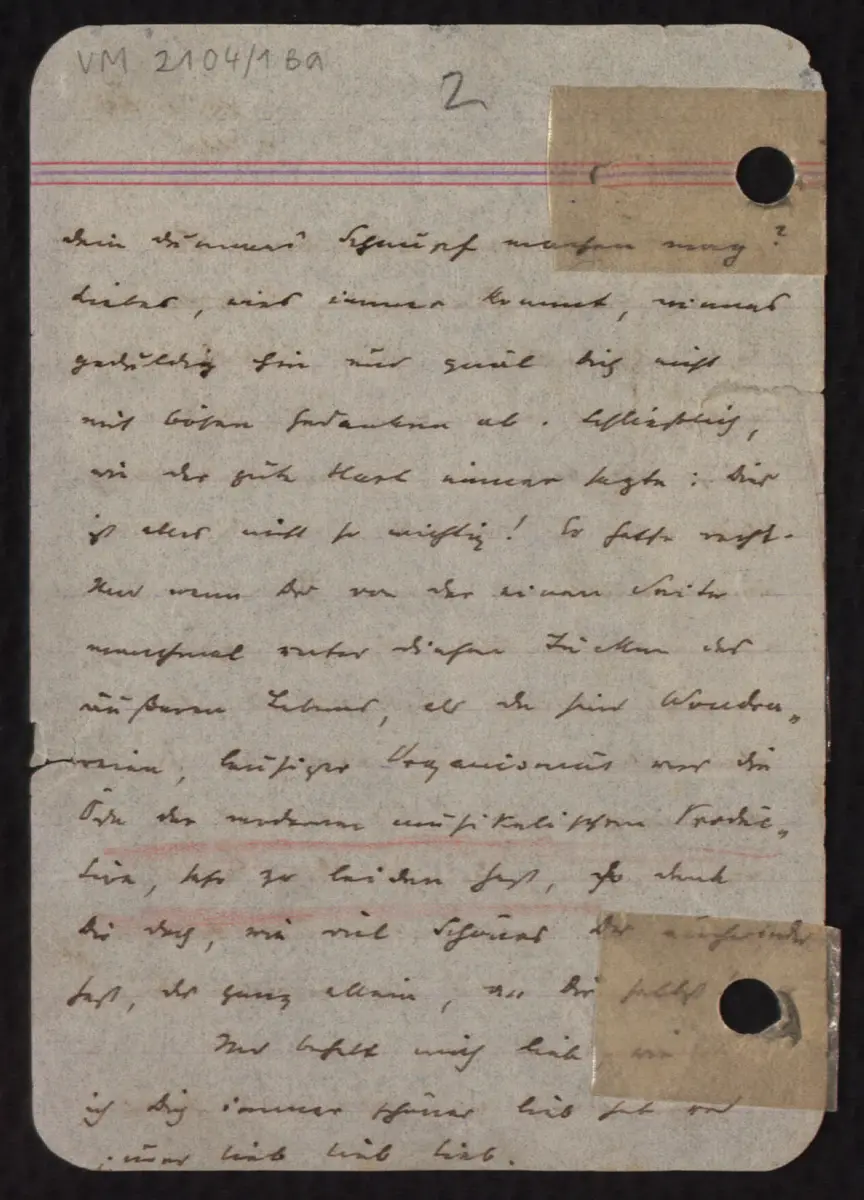 VM 2104/1 Ba
2
dein dummes Schnupf machen mag?
Liebes, was immer kommt, nimms
geduldig hin und quäl Dich nicht
mit bösen Gedanken ab. Schließlich,
wie der gute immer sagte: Das
ist alles nicht so wichtig! Er hatte recht.
Und wenn Du von der einen Seite
manchmal unter diesen Tücken des
äußeren Lebens, als da sind
Organismus und die
Öde der modernen musikalischen Produc„
tion, sehr zu leiden hast, so denk
Dir doch, wie viel Schönes Du
hast, Du ganz allein, an Dir selbst!
Und behalt mich lieb wie
ich Dich immer lieb hab und
immer lieb lieb lieb.